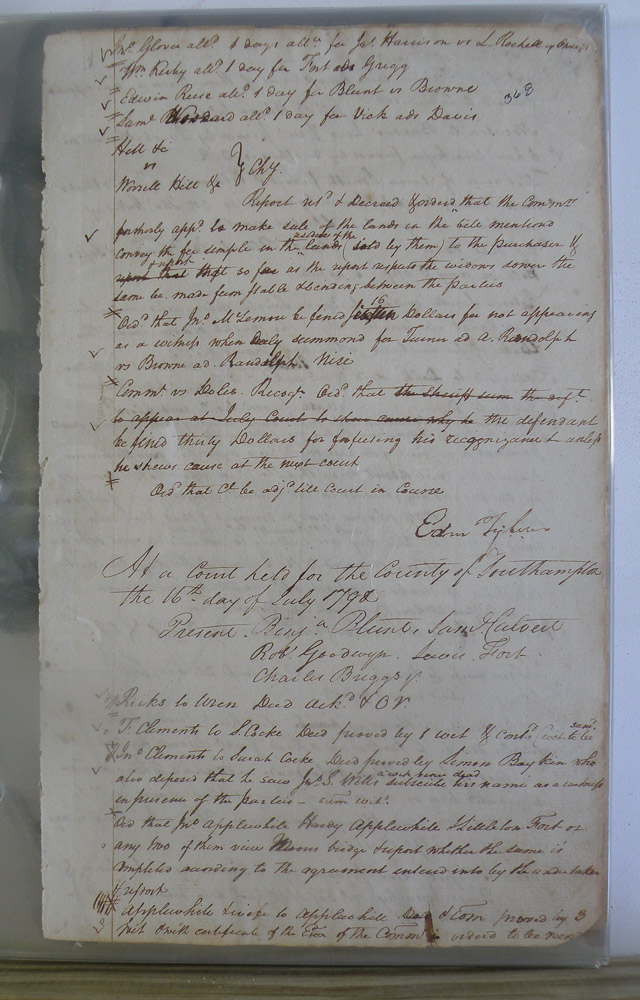 Jno. Glover alld. 6 days allce for Jas. Harrison vs L. Rochell
Wm Kirby alld. 1 day for Fort ads Grigg
Edwin Reese alld. 1 day for Blunt vs Browne
368
Saml. Woodard alld. 1 day for Vick ads Davis
Hill &c
vs
Worrell Hill &c } Chy.
Report retd. & Decreed & ordered that the Commrs
formerly appd. to make sale of the lands in the bill mentioned
residue of the
convey the fee simple in the lands (sold by them) to the purchaser &
& report
report that that so far as the report respects the widows dower the
same be made firm stable & binding between the parties
16
Ord. that Jno. McLemore be fined sixteen Dollars for not appearing
as a witness when duly summond for Turner ad. A. Randolph
vs Browne ad. Randolph. Nisi
Commt. vs Doles. Recogt. Ord. that the Sheriff sum the deft.
to appear at July Court to shew cause why he the defendant
be fined thirty Dollars for forfeiting his recognizance & unless
he shews cause at the next court
Ord that Ct. be adjd. till Court in Course
Edm
At a Court held for the County of Southampton
the 16th. day of July 1792
Present. Benja. Blunt, Saml. Calvert
Robt. Goodwyn. Lewis Fort
Charles Briggs
Ricks to Wren Deed ackd. & O R
T. Clements to S. Cocke Deed proved by 1 wit & contd.
Jno Clements to Sarah Cocke Deed proved by Lemon Boykin who
a witness now dead
also deposed that he saw Jno. S. Wills subscribe his name as a witness
in presence of the parties -
Ord that Jno Applewhite Hardy Applewhite & Littleton Fort or
any two of them view bridge & report whether the same is
completed according to the agreement entered into by the undertaker
& report
Applewhite & wife to Applewhite Deed & Com proved by 3
wit & with certificate of the Exon of the Common is orderd to be record